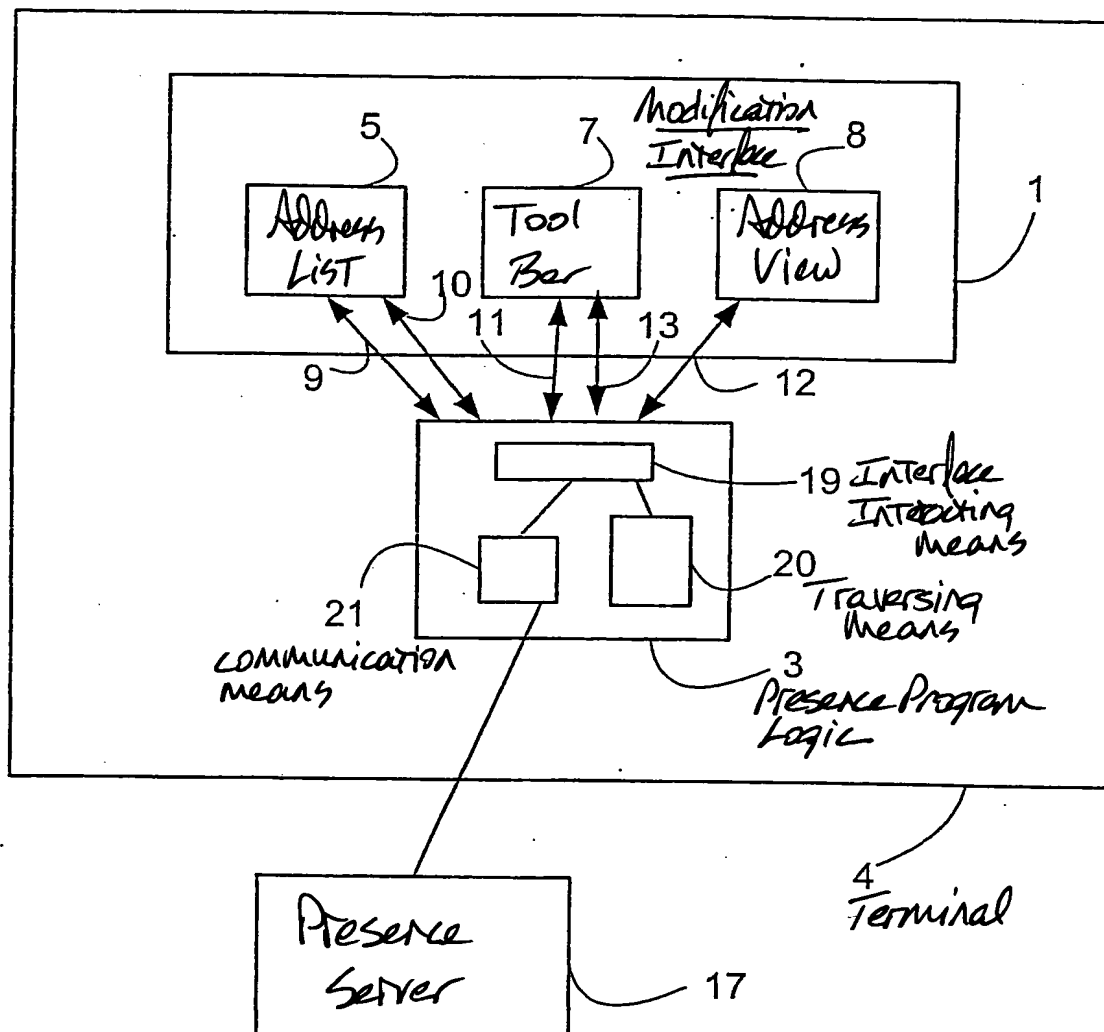 Modification
Interface
5
7
8
1
Address
List
Tool
Bar
Address
View
10
11
13
9
12
19 Interface
Interacting
means
20
Traversing
means
21
communication
means
3
Presence Program
Logic
4
Terminal
Presence
Server
17